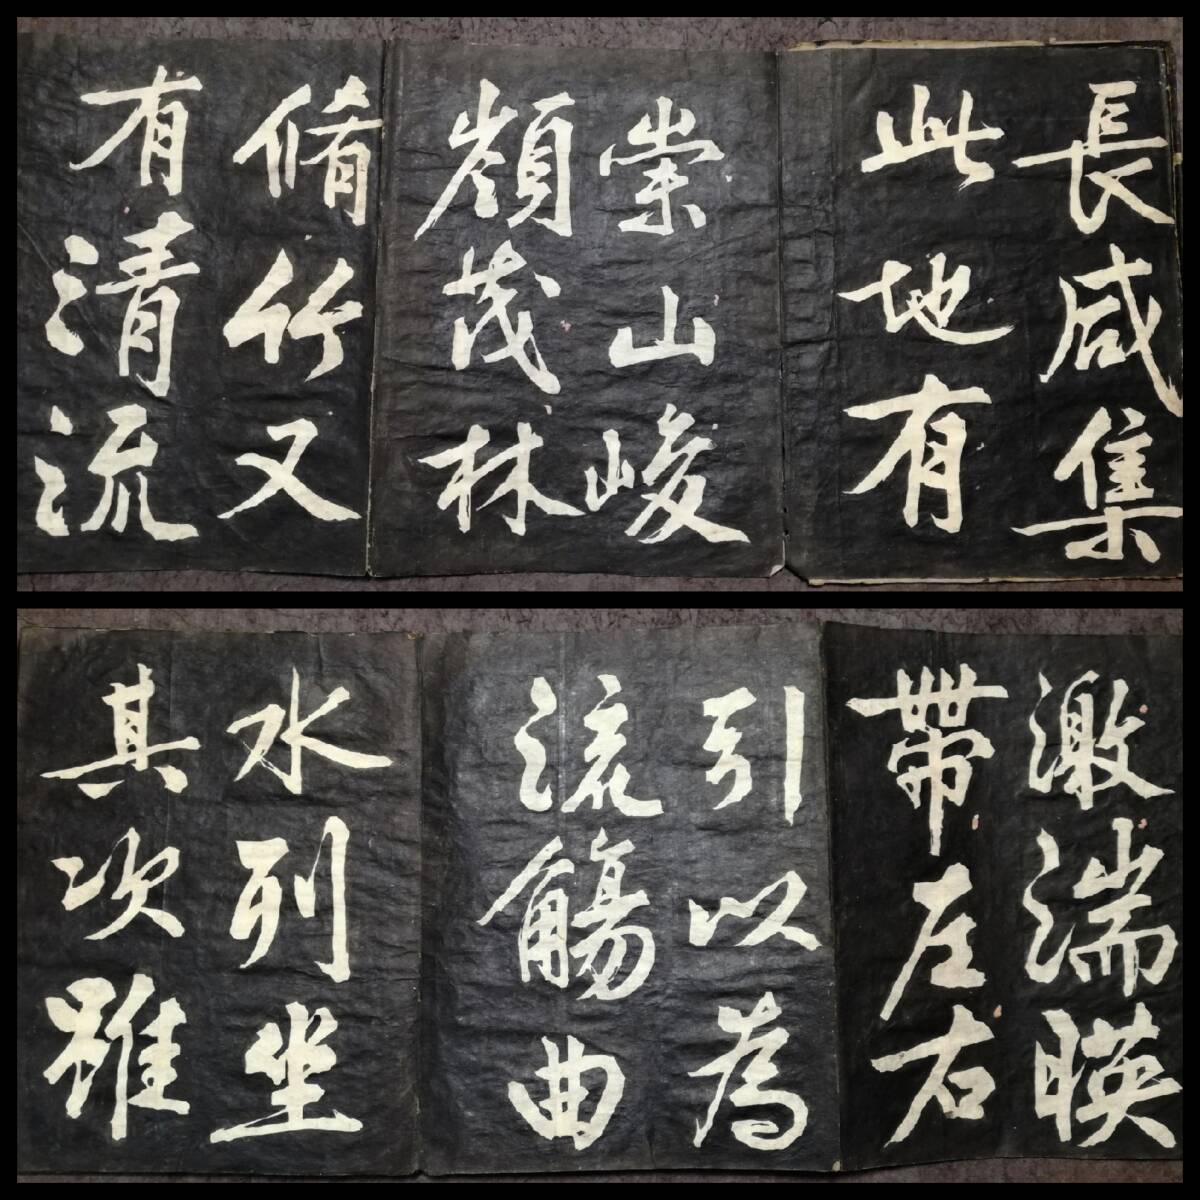 長咸集
此地有
崇山峻
領茂林
脩竹又
有清流
激湍暎
帶左右
引以為
流觴曲
水列坐
其次雖